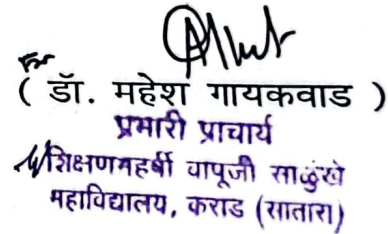 For
( डॉ. महेश गायकवाड )
प्रभारी प्राचार्य
शिक्षणमहर्षी बापूजी साळुंखे
महाविद्यालय, कराड (सातारा)